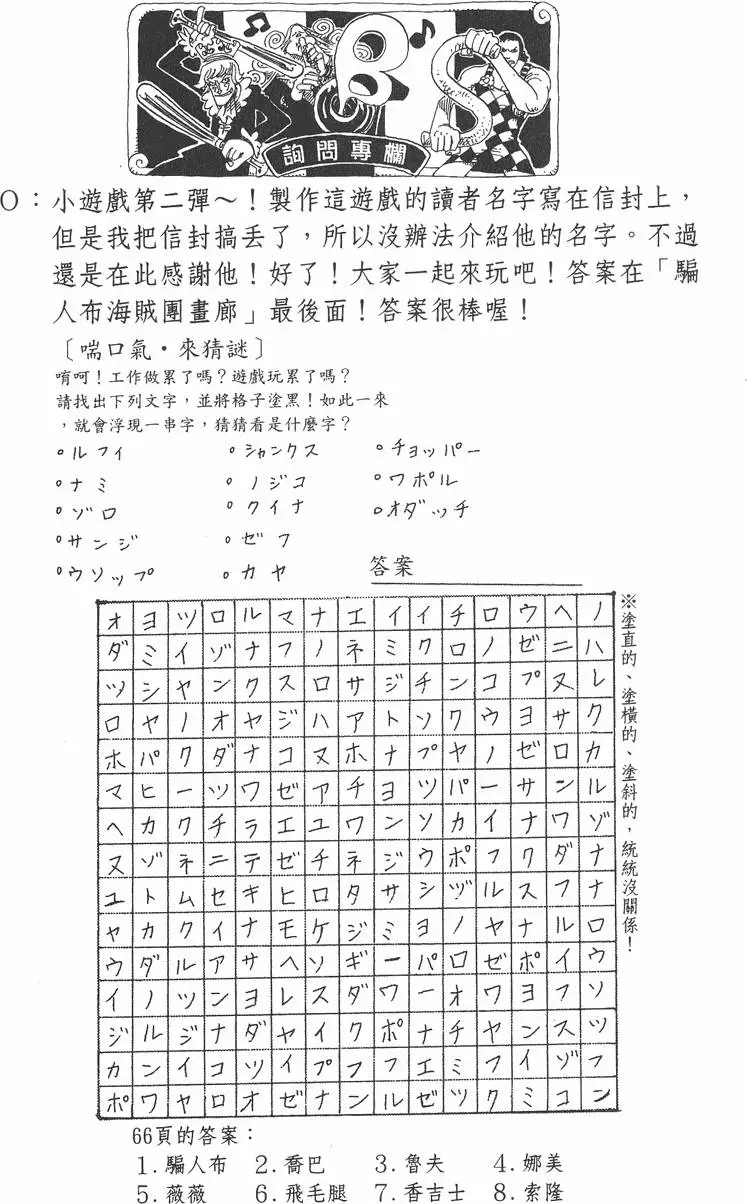 SBS
詢問專欄
O：小遊戲第二彈～！製作這遊戲的讀者名字寫在信封上，
但是我把信封搞丟了，所以沒辦法介紹他的名字。不過
還是在此感謝他！好了！大家一起來玩吧！答案在「騙
人布海賊團畫廊」最後面！答案很棒喔！
〔喘口氣・來猜謎〕
唷呵！工作做累了嗎？遊戲玩累了嗎？
請找出下列文字，並將格子塗黑！如此一來
，就會浮現一串字，猜猜看是什麼字？
。ルフィ 。シャンクス 。チョッパー
。ナミ 。ノジコ 。ワポル
。ゾロ 。クイナ 。オダッチ
。サンジ 。ゼフ
。ウソップ 。カヤ 答案
オ ヨ ツ ロ ル マ ナ エ イ イ チ ロ ウ ヘ ノ
ダ ミ イ ゾ ナ フ ノ ネ ミ ク ロ ノ ゼ ニ ハ
ツ シ ヤ ン ク ス ロ サ ジ チ ン コ プ ヌ レ
ロ ヤ ノ オ ヤ ジ ハ ア ト ソ ワ ウ ヨ サ ク
ホ パ ク ダ ナ コ ヌ ホ ナ プ ヤ ノ ゼ ロ カ
マ ヒ ー ツ ワ ゼ ア チ ヨ ツ パ ー サ ン ル
ヘ カ ク チ ラ エ ユ ワ ン ソ カ イ ナ ワ ゾ
ヌ ゾ ネ ニ テ ゼ チ ネ ジ ウ ポ フ ク ダ ナ
ユ ト ム セ キ ヒ ロ タ サ シ ヅ ル ス フ ナ
ヤ カ ク イ ナ モ ケ ジ ミ ヨ ノ ヤ ナ ル ロ
ウ ダ ル ア サ ヘ ソ ギ ー パ ロ ゼ ポ イ ウ
イ ノ ツ ン ヨ レ ス ダ ワ ー オ ワ ヨ フ ソ
ジ ル ジ ナ ダ ヤ イ ク ポ ナ チ ヤ ン ス ツ
カ ン イ コ ツ イ プ フ フ エ ミ フ イ ゾ フ
ポ ワ ヤ ロ オ ゼ ナ ン ル ゼ ツ ク ミ コ ン
※塗直的、塗橫的、塗斜的，統統沒關係！
66頁的答案：
1.騙人布 2.喬巴 3.魯夫 4.娜美
5.薇薇 6.飛毛腿 7.香吉士 8.索隆